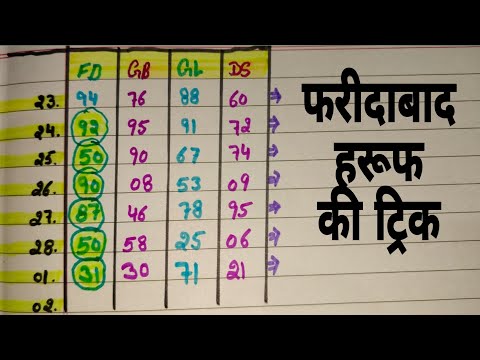 FD GB GL DS
23. 94 76 88 60 ⇒
24. 92 95 91 72 ⇒
25. 50 90 67 74 ⇒
26. 90 08 53 09 ⇒
27. 87 46 78 95 ⇒
28. 50 58 25 06 ⇒
01. 31 30 71 21 ⇒
02.
फरीदाबाद
हरूफ
की ट्रिक